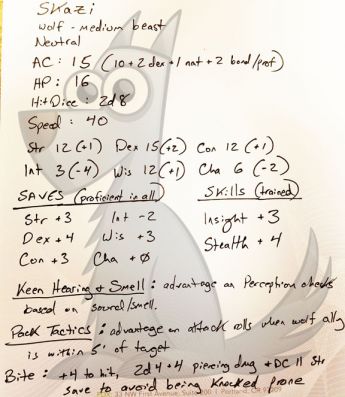 Skazi
wolf - medium beast
Neutral
AC: 15 (10+2 dex +1 nat + 2 bond/prof)
HP: 16
Hit Dice: 2d8
Speed: 40
Str 12 (+1) Dex 15 (+2) Con 12 (+1)
Int 3 (-4) Wis 12 (+1) Cha 6 (-2)
SAVES (proficient in all) Skills (trained)
Str +3 Int -2 Insight +3
Dex +4 Wis +3 Stealth +4
Con +3 Cha +0
Keen Hearing & Smell: advantage on Perception checks
based on sound/smell.
Pack Tactics: advantage on attack rolls when wolf ally
is within 5' of target
Bite: +4 to hit, 2d4+4 piercing dmg + DC 11 Str
save to avoid being knocked prone
33 NW First Avenue, Suite 200 | Portland, OR 97209